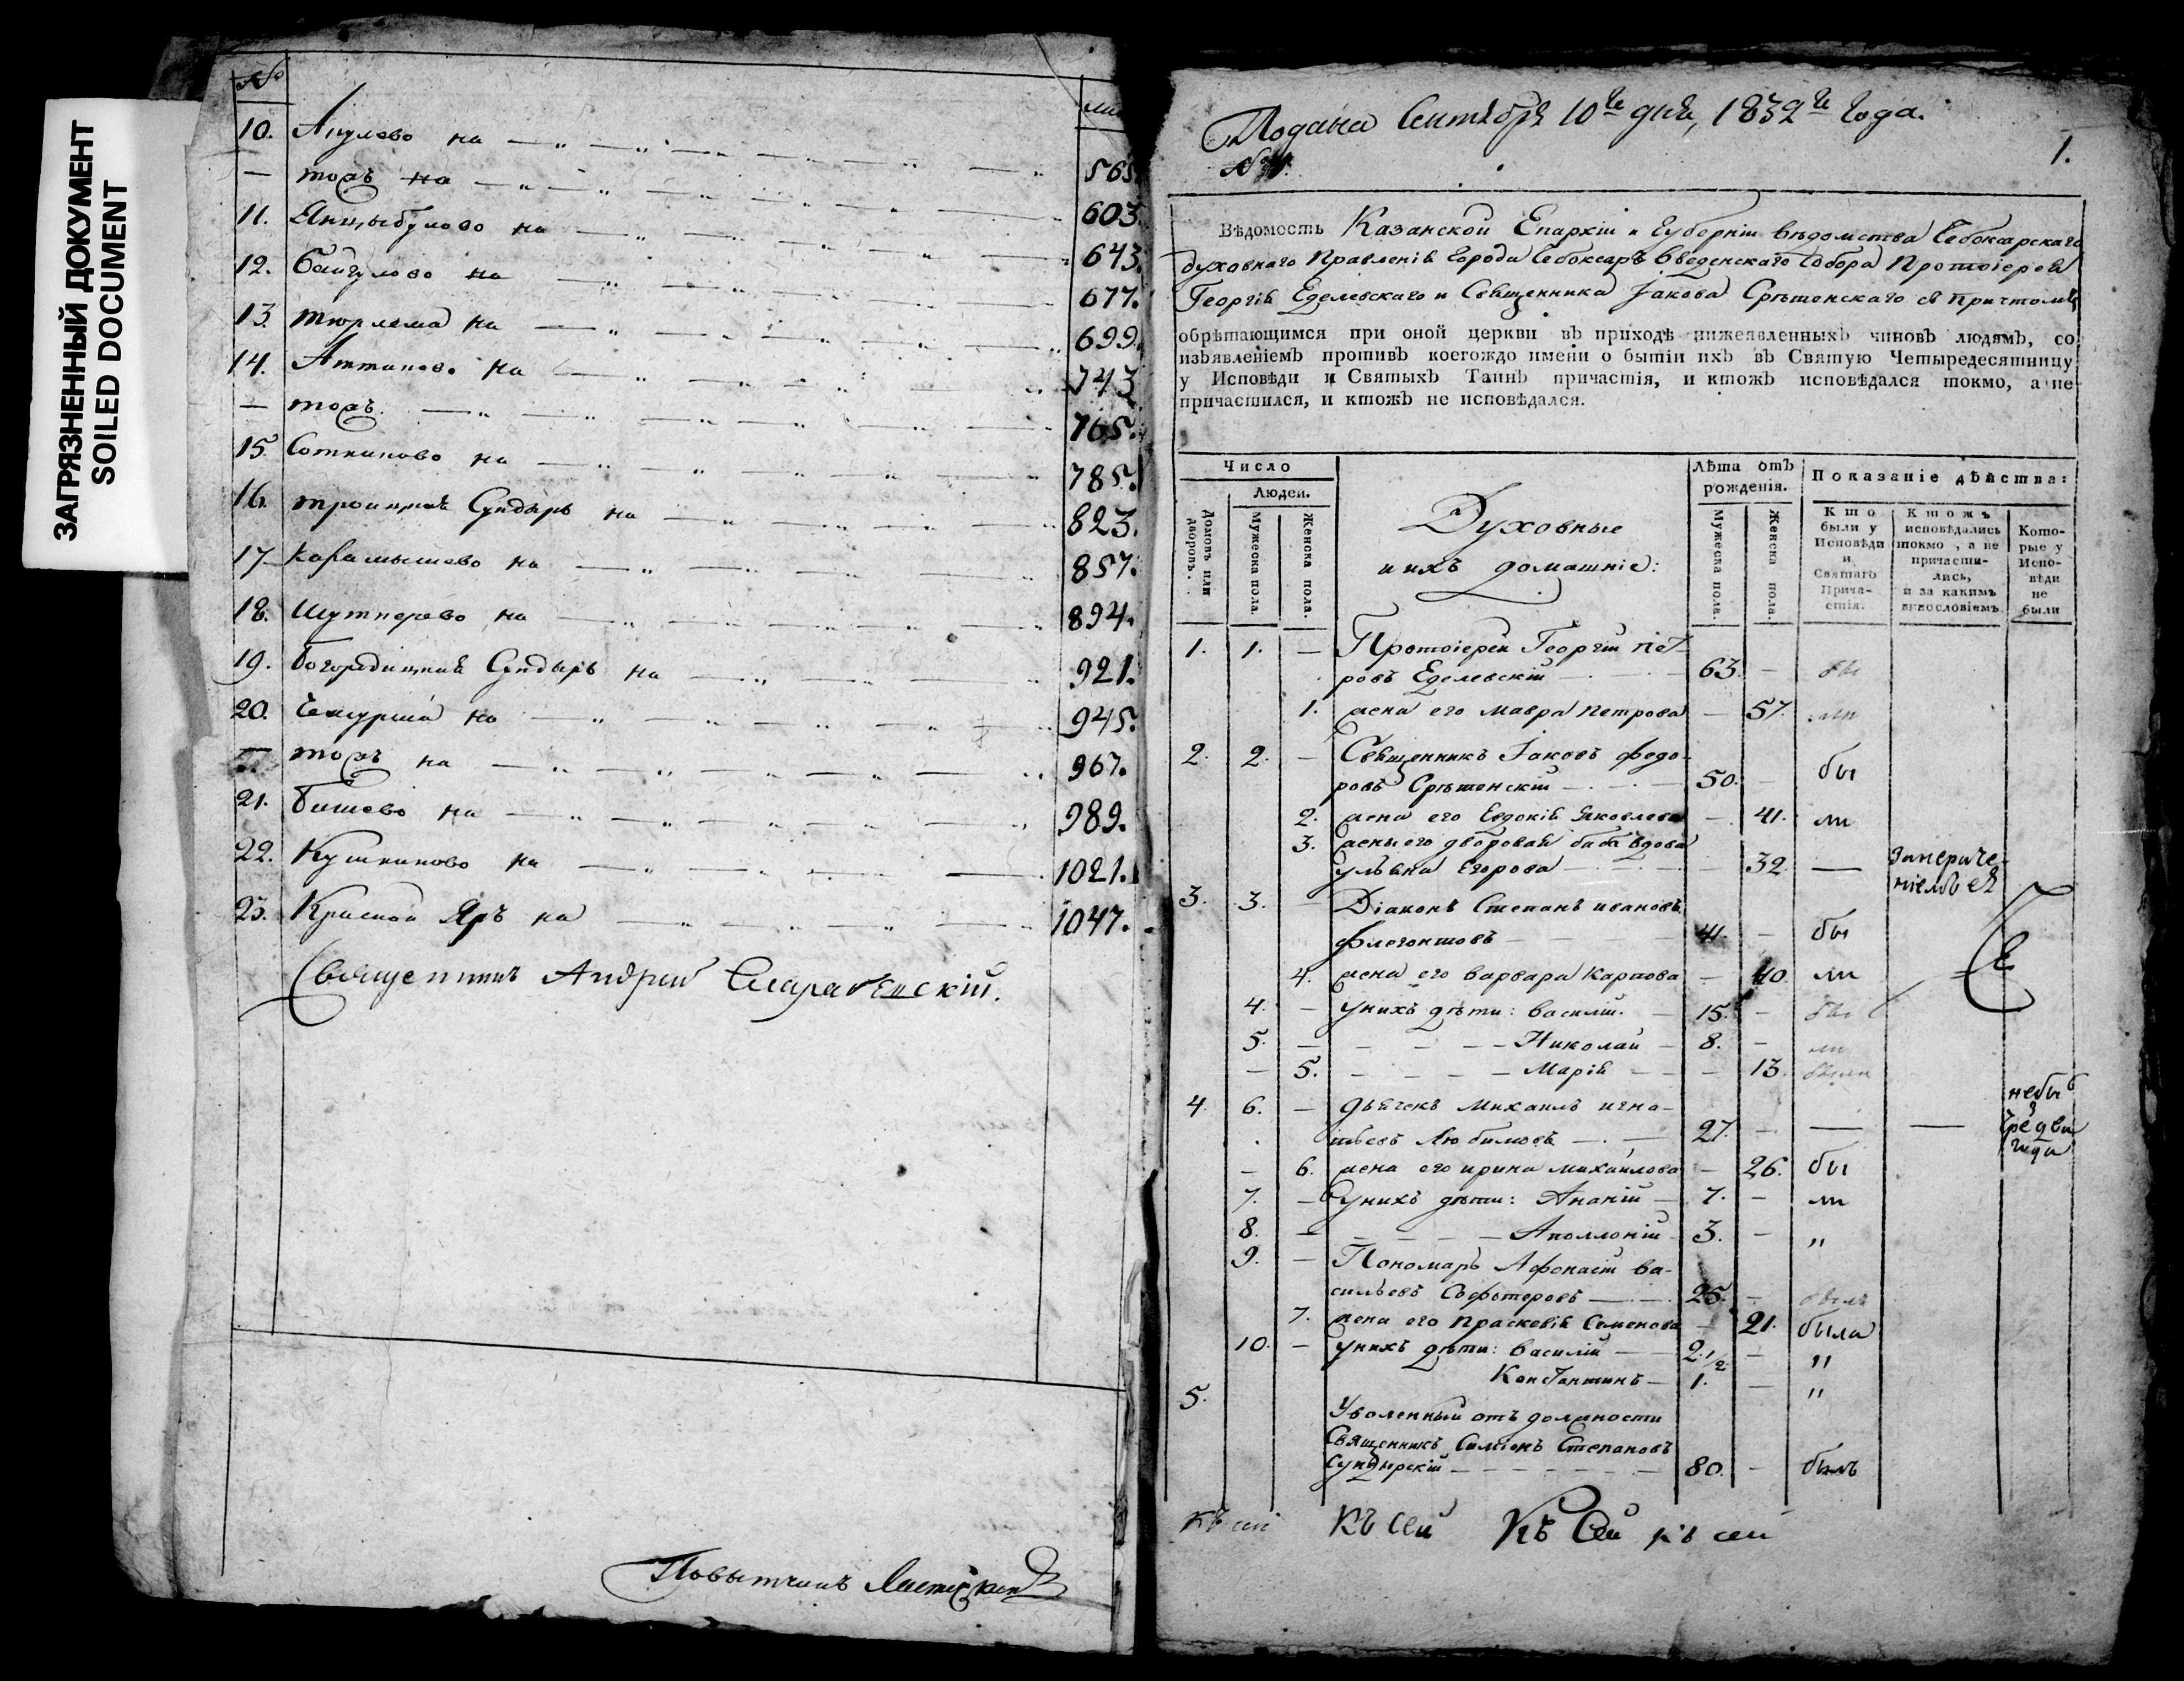 ЗАГРЯЗНЕННЫЙ ДОКУМЕНТ
SOILED DOCUMENT
№
10. Апулево на 565.
— тожъ на 603.
11. Янцыбулово на 643.
12. Байгулово на 677.
13. Тюрлема на 699.
14. Аттиково на 743
— тожъ 765.
15. Сотниково на 785.
16. Троицкой Сундырь на 823.
17. Карамышево на 857.
18. Шутнерово на 894.
19. Богородицкий Сундырь на 921.
20. Чемурша на 945.
— тожъ на 967.
21. Бишево на 989.
22. Кушниково на 1021.
23. Красной Яръ на 1047.
Священникъ Андрей
Повытчикъ
Подана Сентября 10го дня, 1832го Года.
№ 1.
1.
Вѣдомость Казанской Епархіи и Губерніи вѣдомства Чебоксарскаго
духовнаго Правленія Города Чебоксаръ Введенскаго Собора Протоіерея
Георгія Еделевскаго и Священника Іакова Срѣтенскаго съ причтомъ
обрѣтающимся при оной церкви въ приходѣ нижеявленныхъ чиновъ людямъ, со
изъявленіемъ противъ коегождо имени о бытіи ихъ въ Святую Четыредесятницу
у Исповѣди и Святыхъ Таинъ причастія, и ктожъ исповѣдался токмо, а не
причастился, и ктожъ не исповѣдался.
Число
Людей.
Домовъ или дворовъ.
Мужеска пола.
Женска пола.
Духовные
и ихъ домашніе:
Лѣта отъ рожденія.
Мужеска пола.
Женска пола.
Показаніе дѣйства:
Кто были у Исповѣди и Святаго Причастія.
Ктожъ исповѣдались токмо, а не причастились, и за какимъ винословіемъ.
Которые у Исповѣди не были
1. 1. — Протоіерей Георгій Пет-
ровъ Еделевскій 63. — бы
1. жена его Мавра Петрова — 57. ли
2. 2. — Священникъ Іаковъ Федо-
ровъ Срѣтенскій 50. — бы
2. жена его Евдокія Яковлева — 41. ли
3. жены его дворовая баба вдова
Ульяна Егорова — 32. —
3. 3. — Діаконъ Степанъ Ивановъ
Флегонтовъ 41. — бы
4. жена его Варвара Карпова — 40. ли
4. — у нихъ дѣти: Василій 15. — бы
5. — Николай 8. — ли
— 5. Марія — 13. были
4. 6. — Дьячекъ Михаилъ Игна-
тьевъ Любимовъ 27. — — — небы
— 6. жена его Ирина Михайлова — 26. бы
7. — у нихъ дѣти: Ананій 7. — ли
8. — Аполлоній 3. — "
9. — Пономарь Афонасій Ва-
сильевъ 25. — былъ
7. жена его Прасковія Семенова — 21. была
10. — у нихъ дѣти: Василій 2 1/2 — "
Константинъ 1. — "
5. Уволенный отъ должности
Священникъ Симіонъ Степановъ
Сундырскій 80. — былъ
Къ сей Къ сей Къ Сей къ сей